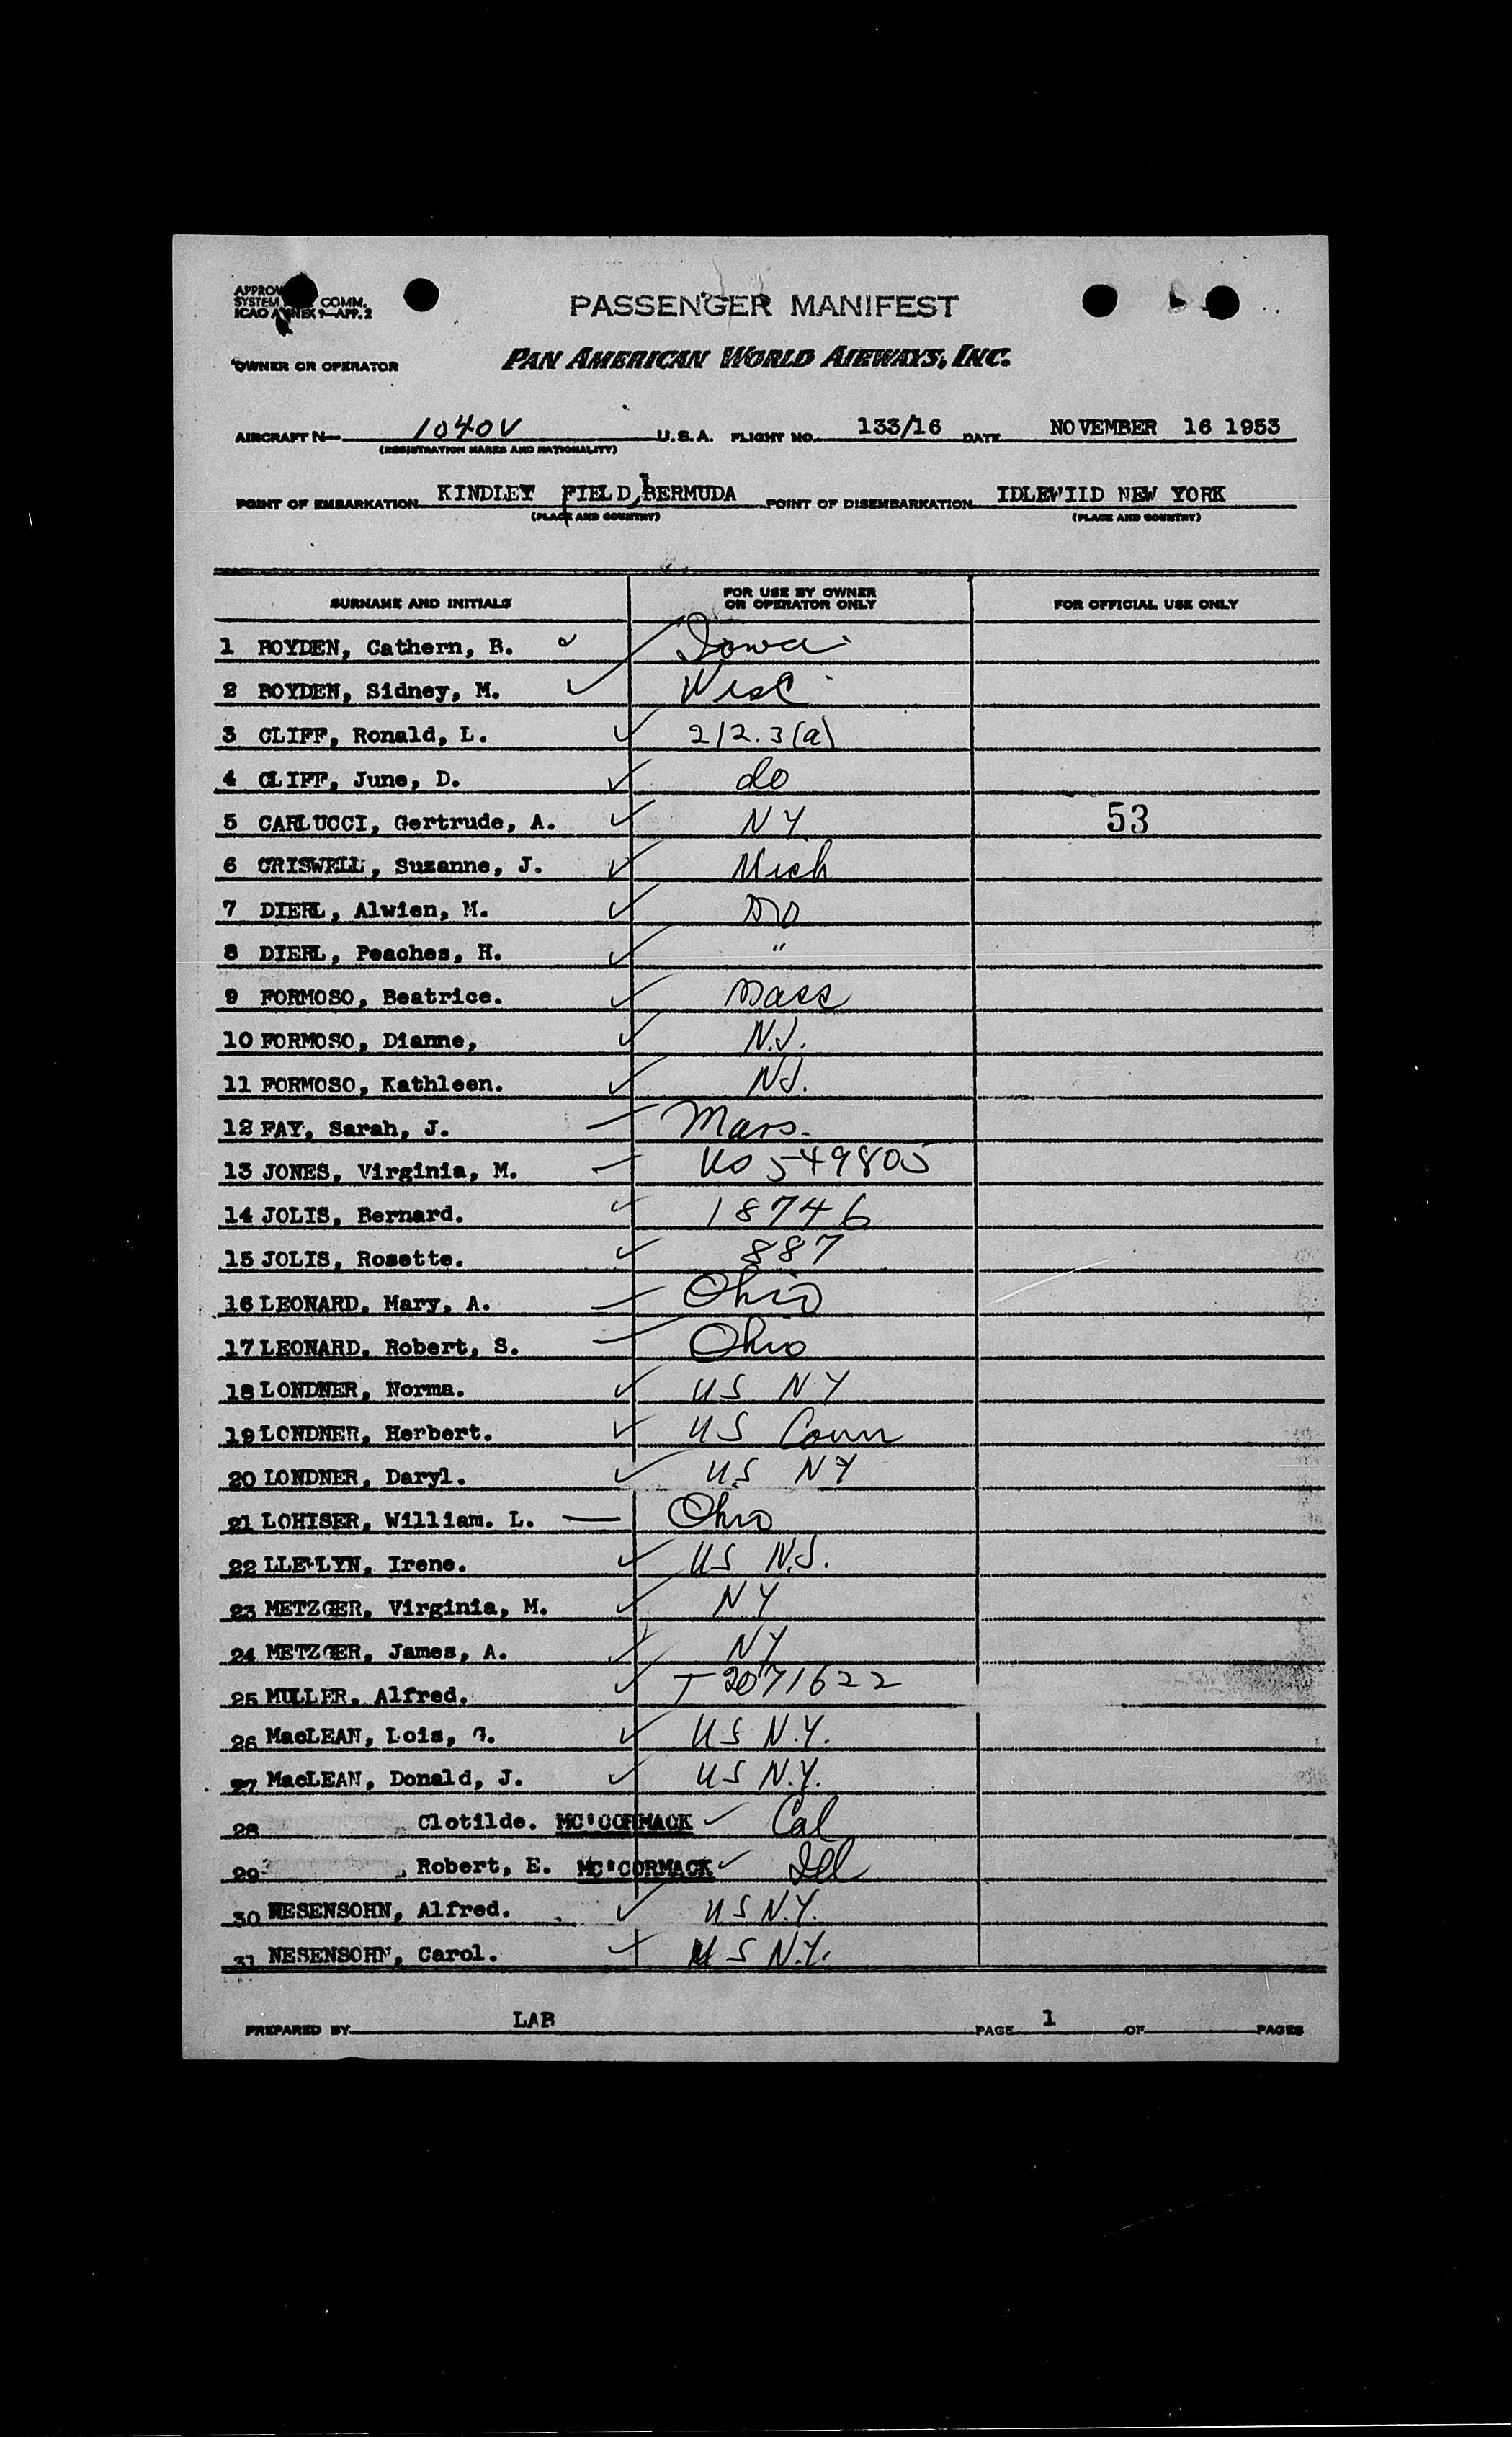 APPROV
SYSTEM COMM.
ICAO ANNEX 9—APP. 2
PASSENGER MANIFEST
OWNER OR OPERATOR PAN AMERICAN WORLD AIRWAYS, INC.
AIRCRAFT N— 1040V U.S.A. FLIGHT NO. 133/16 DATE NOVEMBER 16 1953
(REGISTRATION MARKS AND NATIONALITY)
POINT OF EMBARKATION KINDLEY FIELD, BERMUDA POINT OF DISEMBARKATION IDLEWIID NEW YORK
(PLACE AND COUNTRY) (PLACE AND COUNTRY)
SURNAME AND INITIALS FOR USE BY OWNER OR OPERATOR ONLY FOR OFFICIAL USE ONLY
1 BOYDEN, Cathern, B. Iowa
2 BOYDEN, Sidney, M. Wisc
3 CLIFF, Ronald, L. 212.3(a)
4 CLIFF, June, D. do
5 CARLUCCI, Gertrude, A. NY 53
6 CRISWELL, Suzanne, J. Mich
7 DIERL, Alwien, M.
8 DIERL, Peaches, H. "
9 FORMOSO, Beatrice. Mass
10 FORMOSO, Dianne, N.J.
11 FORMOSO, Kathleen. NJ.
12 FAY, Sarah, J. Mass.
13 JONES, Virginia, M. 549805
14 JOLIS, Bernard. 18746
15 JOLIS, Rosette. 887
16 LEONARD, Mary, A. Ohio
17 LEONARD, Robert, S. Ohio
18 LONDNER, Norma. US NY
19 LONDNER, Herbert. US Conn
20 LONDNER, Daryl. US NY
21 LOHISER, William. L. Ohio
22 LLEWLYN, Irene. US N.J.
23 METZGER, Virginia, M. NY
24 METZGER, James, A. NY
25 MULLER, Alfred. T 2071622
26 MacLEAN, Lois, G. US N.Y.
27 MacLEAN, Donald, J. US N.Y.
28 Clotilde. MC'CORMACK Cal
29 , Robert, E. MC'CORMACK Ill
30 NESENSOHN, Alfred. US N.Y.
31 NESENSOHN, Carol. US N.Y.
PREPARED BY LAB PAGE 1 OF PAGES